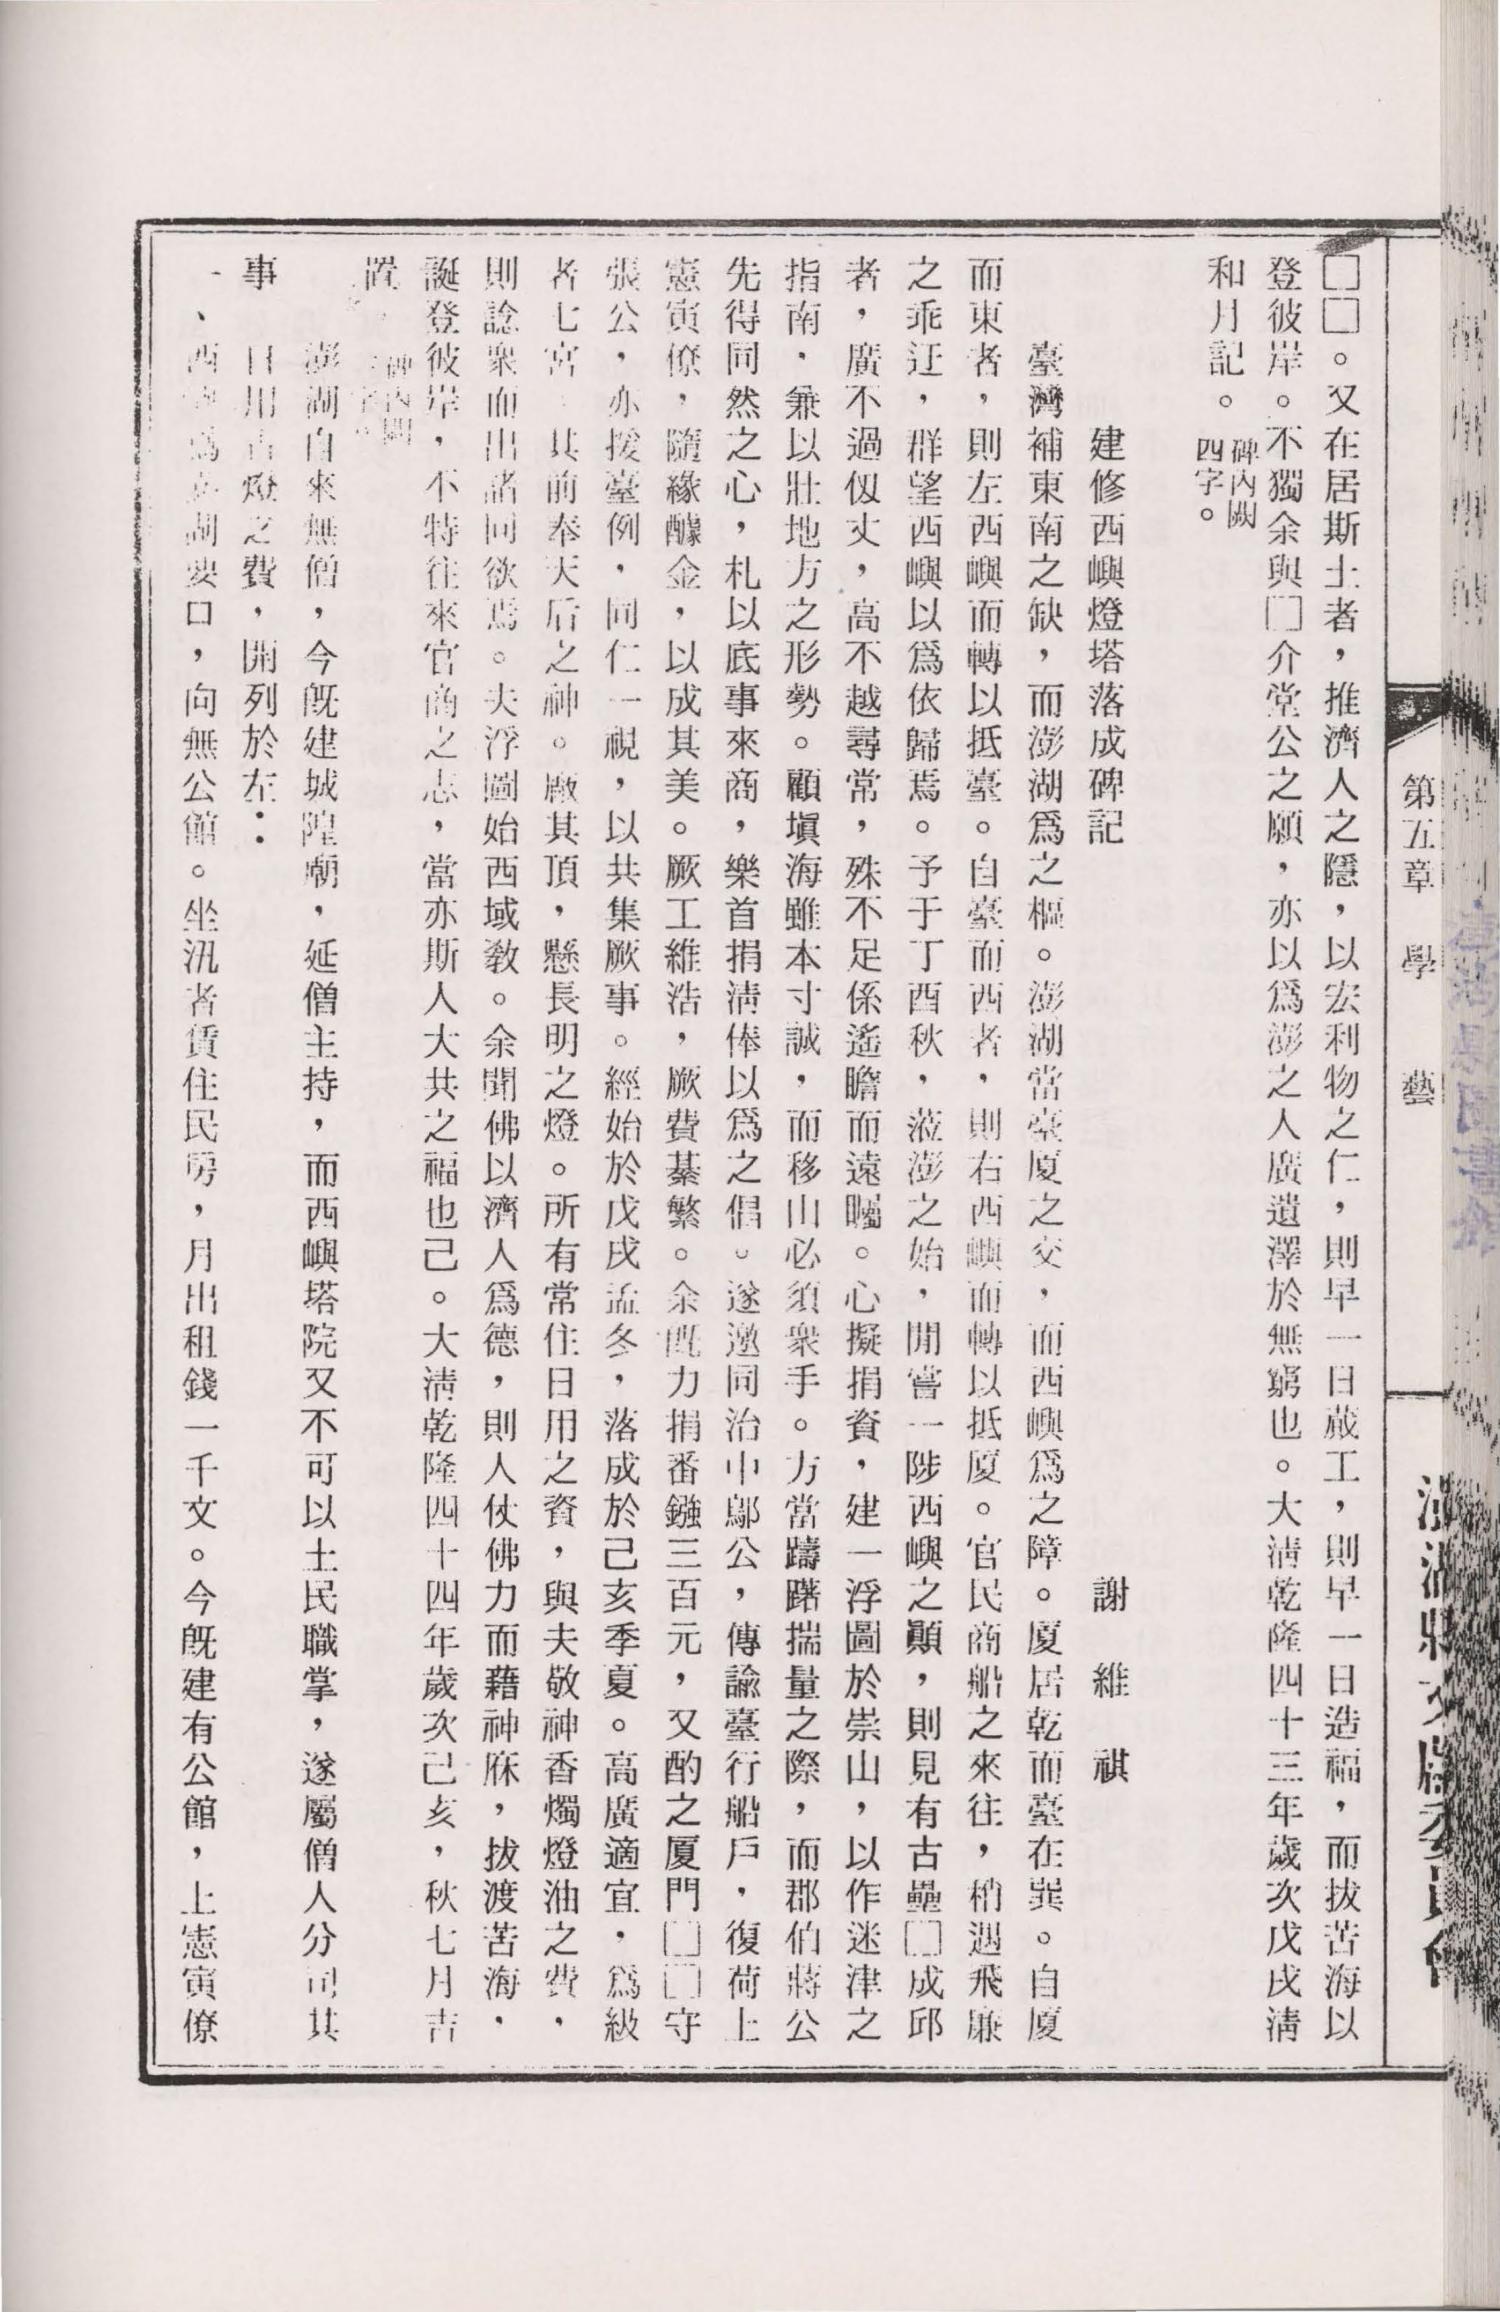 □□。又在居斯土者，推濟人之隱，以宏利物之仁，則早一日蕆工，則早一日造福，而拔苦海以
登彼岸。不獨余與□介堂公之願，亦以爲澎之人廣遺澤於無窮也。大清乾隆四十三年歲次戊戌清
和月記。碑內闕四字。
建修西嶼燈塔落成碑記 謝維祺
臺灣補東南之缺，而澎湖爲之樞。澎湖當臺厦之交，而西嶼爲之障。厦居乾而臺在巽。自厦
而東者，則左西嶼而轉以抵臺。自臺而西者，則右西嶼而轉以抵厦。官民商船之來往，稍遇飛廉
之乖迕，群望西嶼以爲依歸焉。予于丁酉秋，蒞澎之始，閒嘗一陟西嶼之顚，則見有古壘□成邱
者，廣不過仭丈，高不越尋常，殊不足係遙瞻而遠矚。心擬捐資，建一浮圖於崇山，以作迷津之
指南，兼以壯地方之形勢。顧塡海雖本寸誠，而移山必須衆手。方當躊躇揣量之際，而郡伯蔣公
先得同然之心，札以底事來商，樂首捐淸俸以爲之倡。遂邀同治中鄔公，傳諭臺行船戶，復荷上
憲寅僚，隨緣醵金，以成其美。厥工維浩，厥費綦繁。余旣力捐番鏹三百元，又酌之厦門□□守
張公，亦援臺例，同仁一視，以共集厥事。經始於戊戌孟冬，落成於己亥季夏。高廣適宜，爲級
者七宮，其前奉天后之神。廠其頂，懸長明之燈。所有常住日用之資，與夫敬神香燭燈油之費，
則諗衆而出諸同欲焉。夫浮圖始西域敎。余聞佛以濟人爲德，則人仗佛力而藉神庥，拔渡苦海，
誕登彼岸，不特往來官商之志，當亦斯人大共之福也己。大淸乾隆四十四年歲次己亥，秋七月吉
置。碑內闕
澎湖自來無僧，今旣建城隍廟，延僧主持，而西嶼塔院又不可以土民職掌，遂屬僧人分司其
事。日用古燈之費，開列於左：
一、西嶼爲澎湖要口，向無公館。坐汛者賃住民房，月出租錢一千文。今旣建有公館，上憲寅僚
第五章 學 藝
澎湖縣文獻委員會